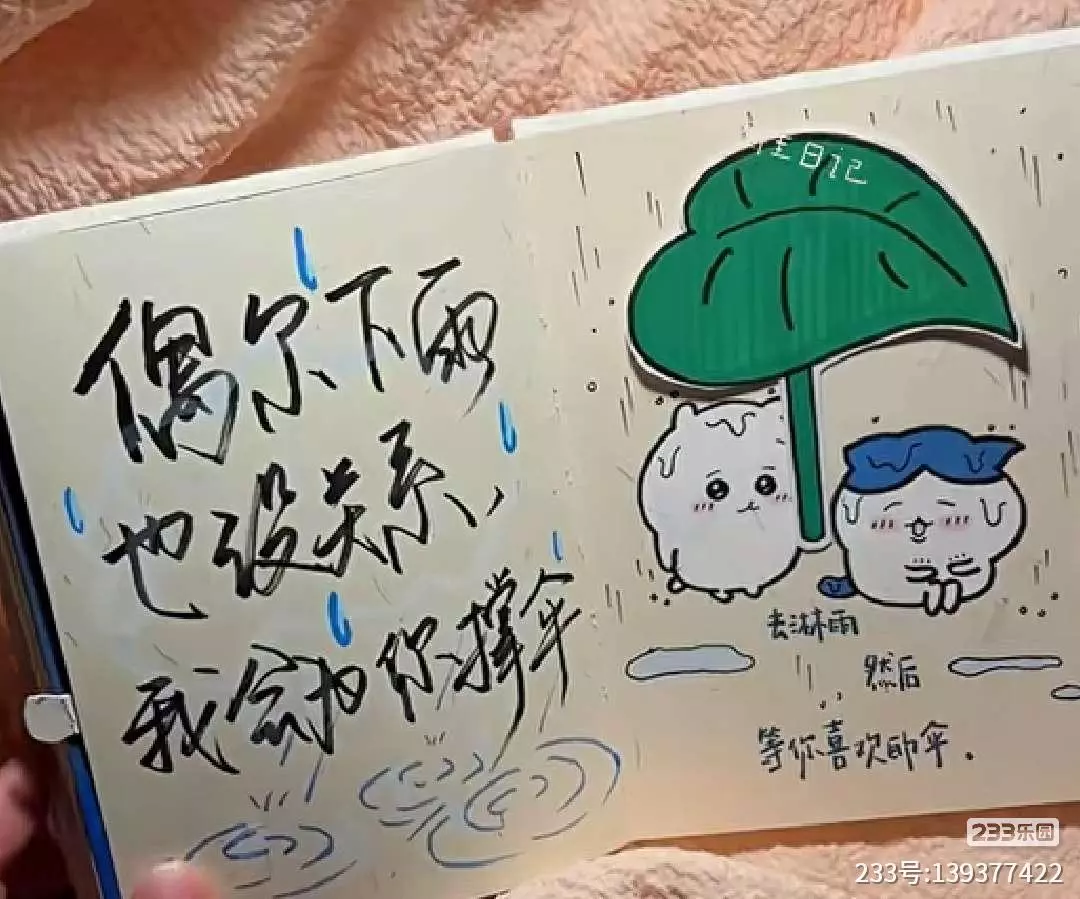 偶尔下雨
也没关系
我会为你撑伞
日记
去淋雨
然后
等你喜欢的伞。
233乐园
233号:139377422